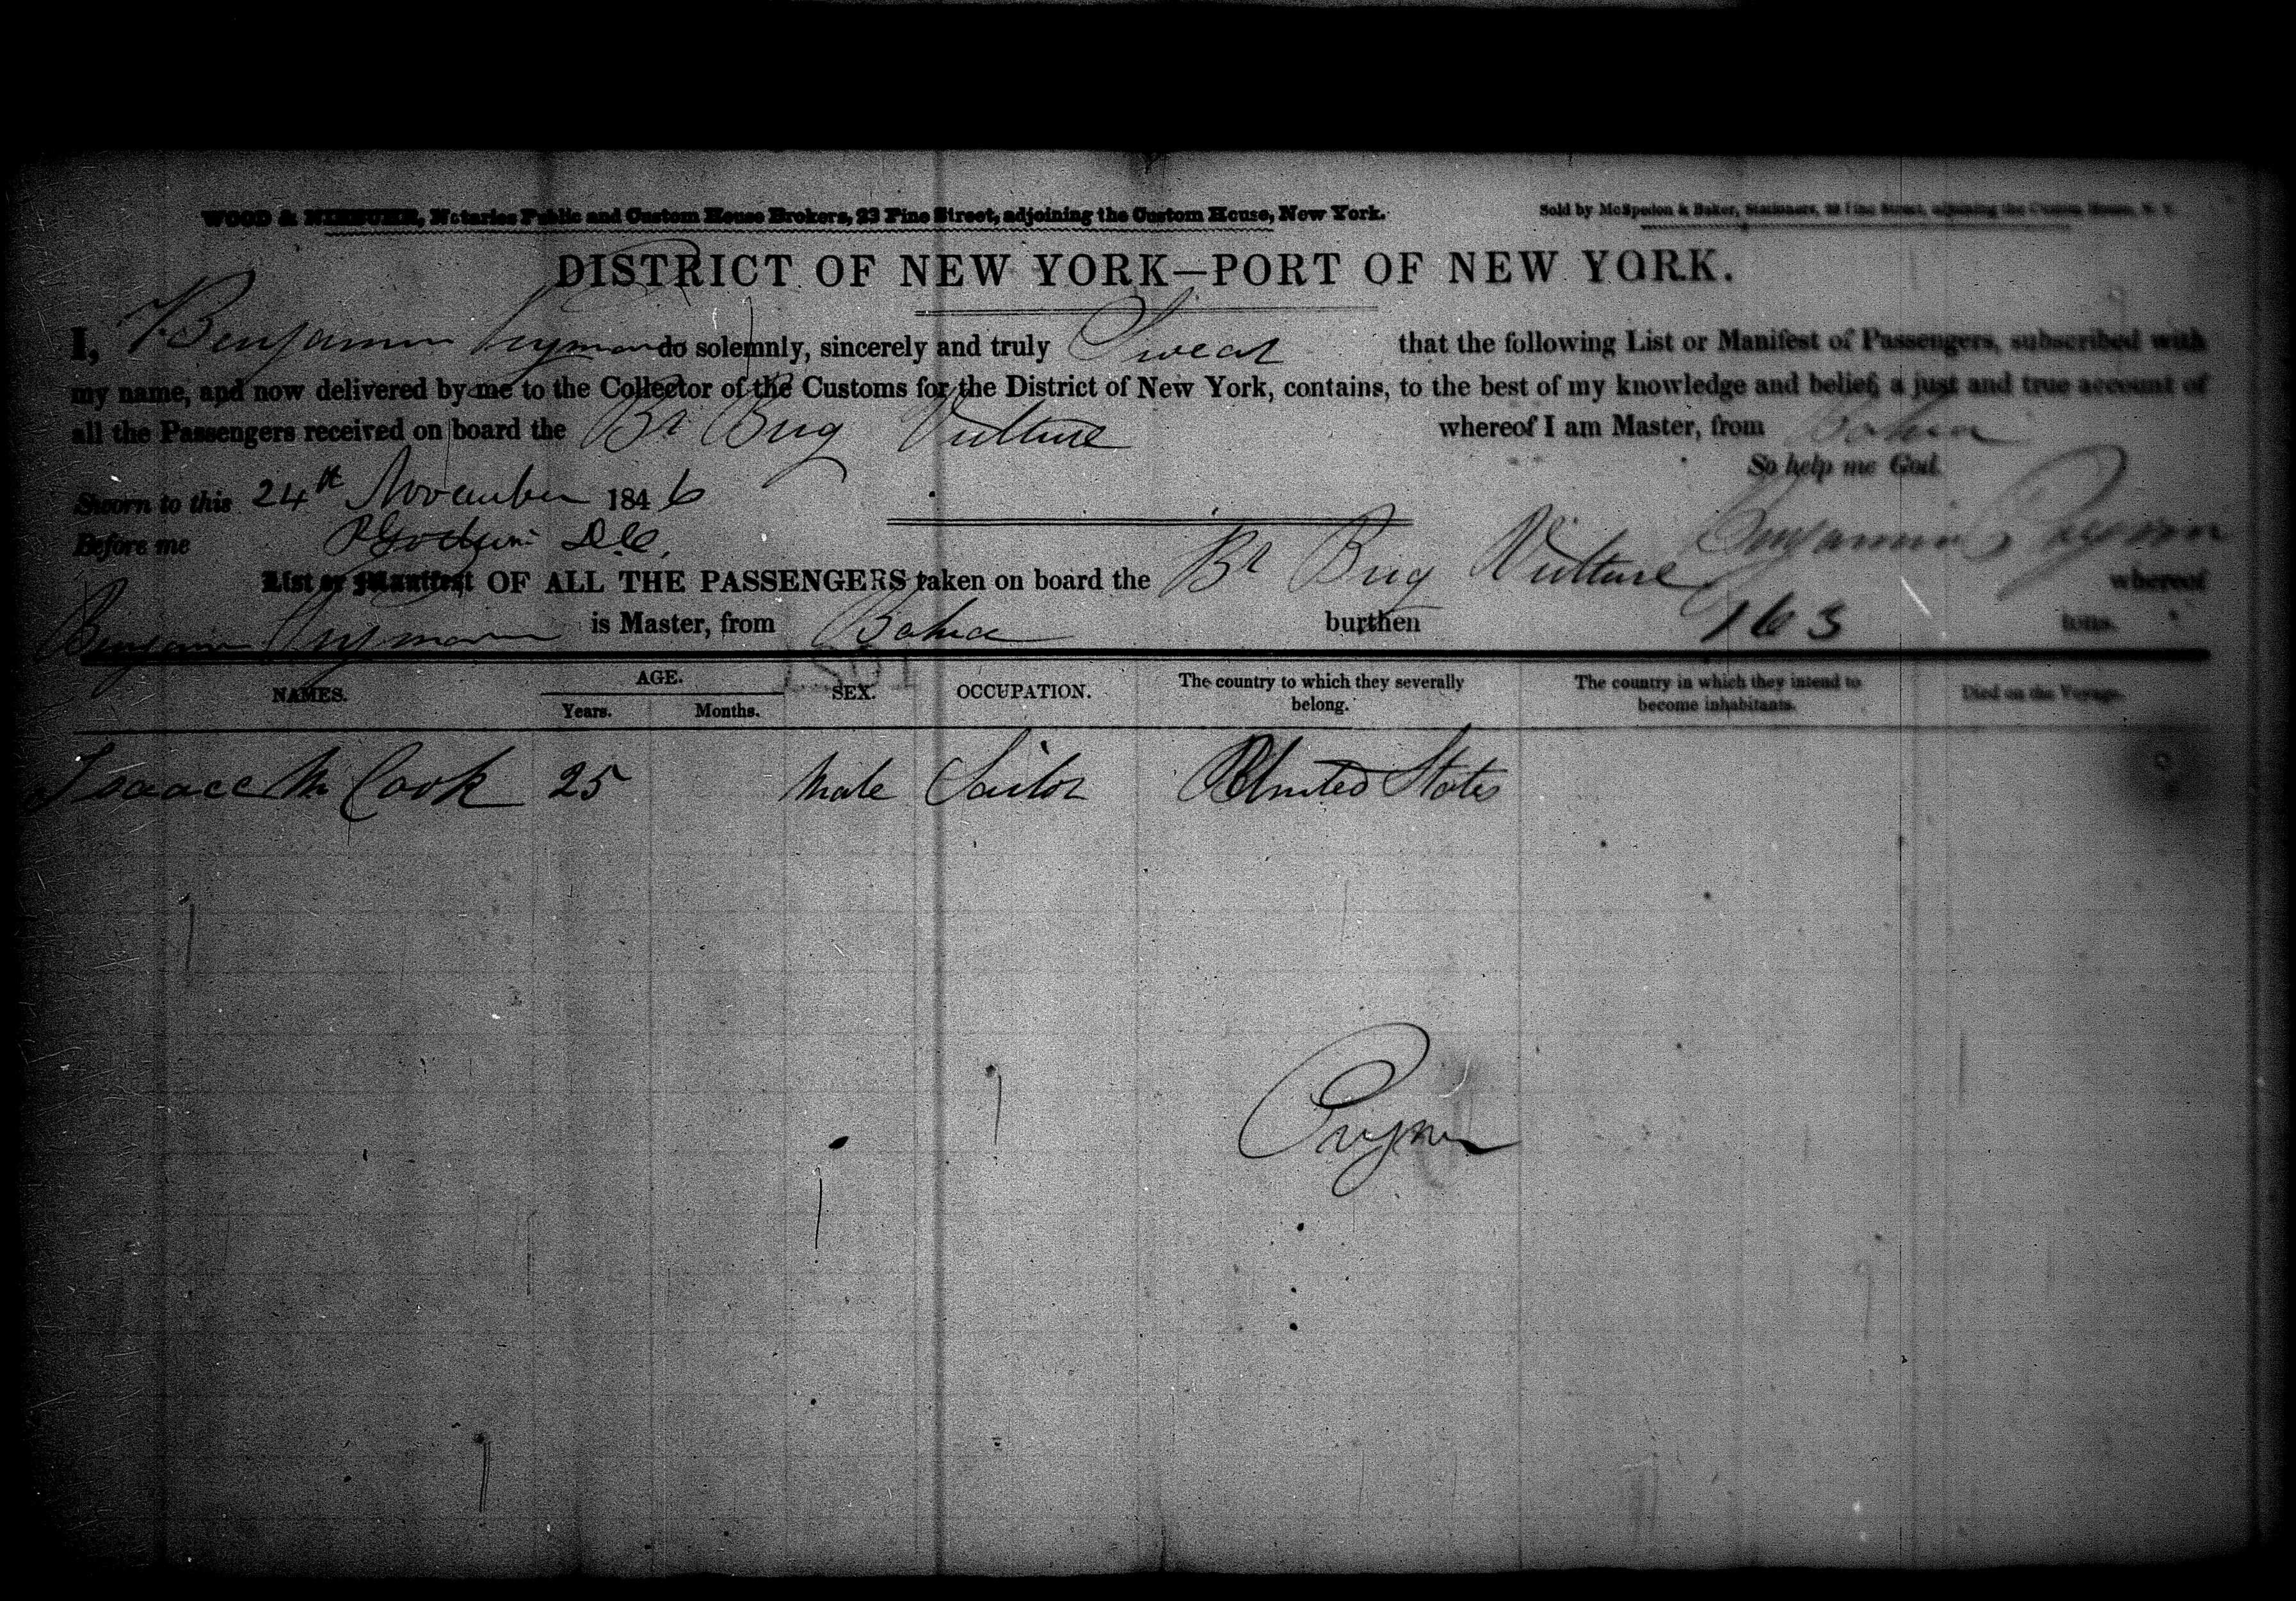 WOOD & NIEBUHR, Notaries Public and Custom House Brokers, 23 Pine Street, adjoining the Custom House, New York.
Sold by McSpedon & Baker, Stationers, 25 Pine Street, adjoining the Custom House, N. Y.
DISTRICT OF NEW YORK—PORT OF NEW YORK.
I, Benjamin do solemnly, sincerely and truly Swear that the following List or Manifest of Passengers, subscribed with
my name, and now delivered by me to the Collector of the Customs for the District of New York, contains, to the best of my knowledge and belief, a just and true account of
all the Passengers received on board the Br Brig Vulture whereof I am Master, from Bahia
So help me God.
Sworn to this 24th November 1846
Benjamin
Before me
List or Manifest OF ALL THE PASSENGERS taken on board the Br Brig Vulture whereof
Benjamin is Master, from Bahia burthen 163 tons.
NAMES. AGE. SEX. OCCUPATION. The country to which they severally belong. The country in which they intend to become inhabitants. Died on the Voyage.
Years. Months.
Isaace M Cook 25 Male Sailor United States